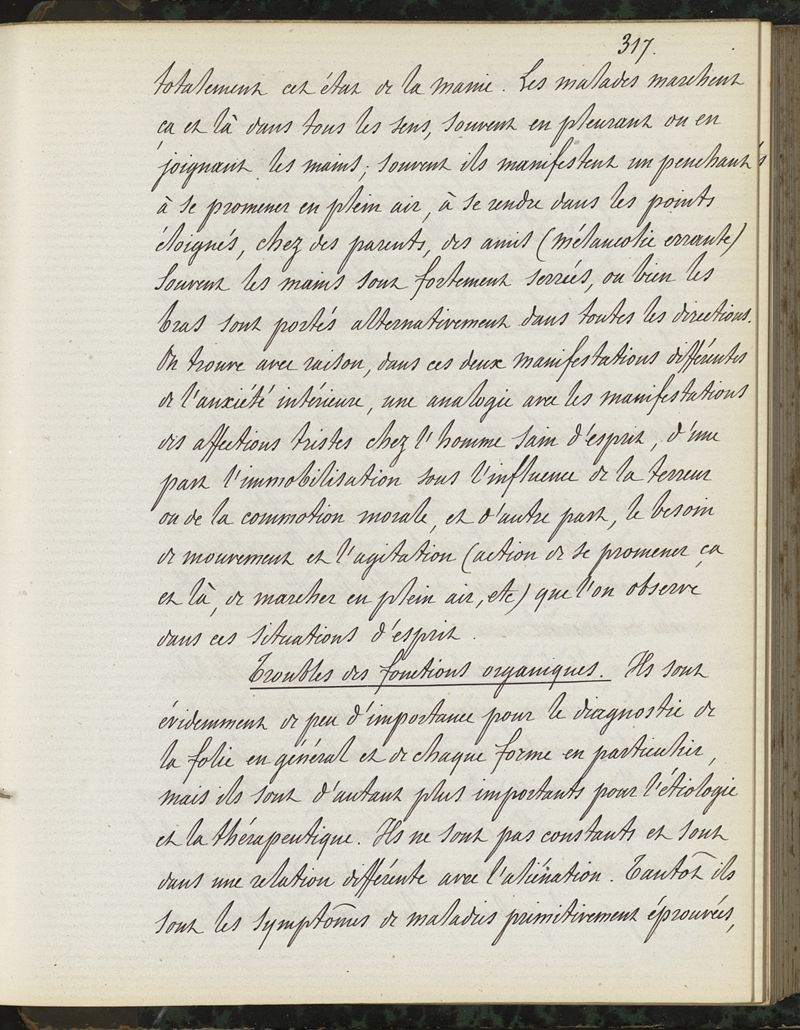 317.
totalement cet état de la manie. Les malades marchent
ça et là dans tous les sens, souvent en pleurant ou en
joignant les mains; souvent ils manifestent un penchant
à se promener en plein air, à se rendre dans les points
éloignés, chez des parents, des amis (mélancolie errante)
Souvent les mains sont fortement serrées, ou bien les
bras sont portés alternativement dans toutes les directions.
On trouve avec raison, dans ces deux manifestations différentes
de l'anxiété intérieure, une analogie avec les manifestations
des affections tristes chez l'homme sain d'esprit, d'une
part l'immobilisation sous l'influence de la terreur
ou de la commotion morale, et d'autre part, le besoin
de mouvement et l'agitation (action de se promener ça
et là, de marcher en plein air, etc) que l'on observe
dans ces situations d'esprit.
Troubles des fonctions organiques. Ils sont
évidemment de peu d'importance pour le diagnostic de
la folie en général et de chaque forme en particulier,
mais ils sont d'autant plus importants pour l'étiologie
et la thérapeutique. Ils ne sont pas constants et sont
dans une relation différente avec l'aliénation. Tantôt ils
sont les symptômes de maladies primitivement éprouvées,